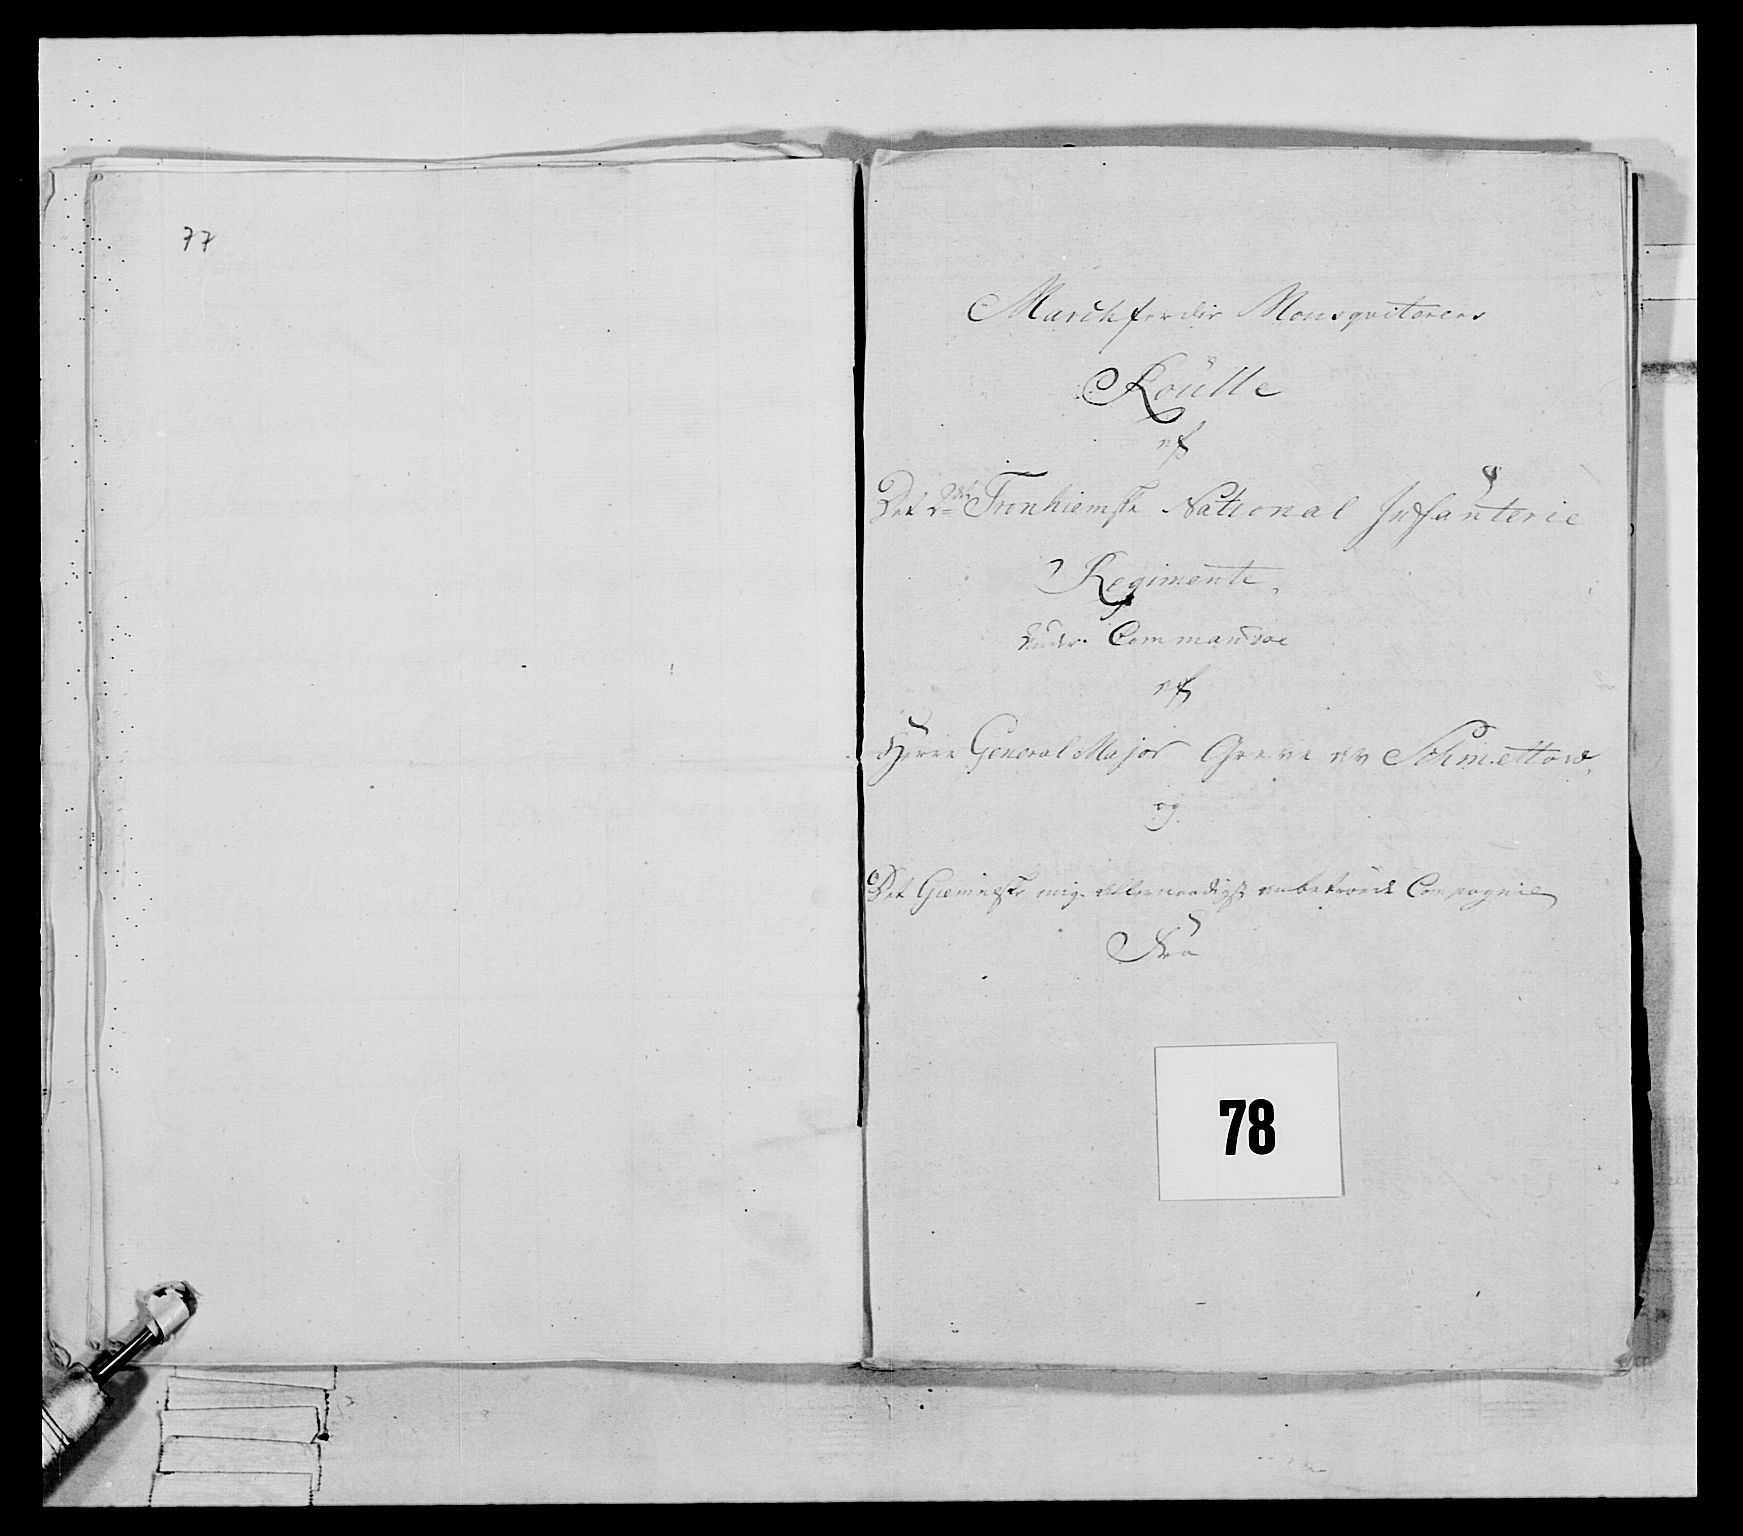 77
March færdige Mousqveterers
Roülle
af
Det 2det Tronhiemske National Infanterie
Regimente,
under Commandoe
af
Herre General Major Greve von Schmettow,
og
Det Giemneske mig allernaadigst anbetroede Compagnie
Fra
78